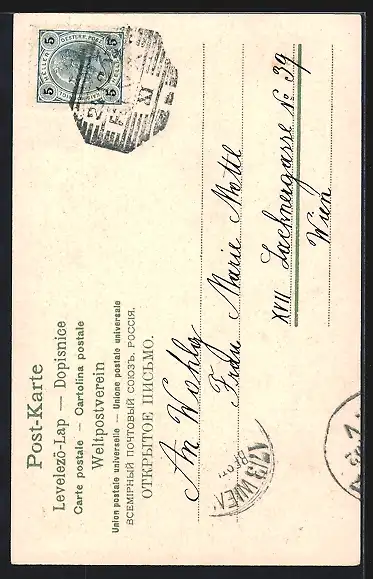 Post-Karte
Levelező-Lap — Dopisnice
Carte postale — Cartolina postale
Weltpostverein
Union postale universelle — Unione postale universale
ВСЕМІРНЫЙ ПОЧТОВЫЙ СОЮЗЪ. РОССІЯ.
ОТКРЫТОЕ ПИСЬМО.
5 5
5 5
OESTERR. POST
XI
An Wohlg
Frau Marie Mottl
XVII Lacknergasse No 39
Wien
WIEN